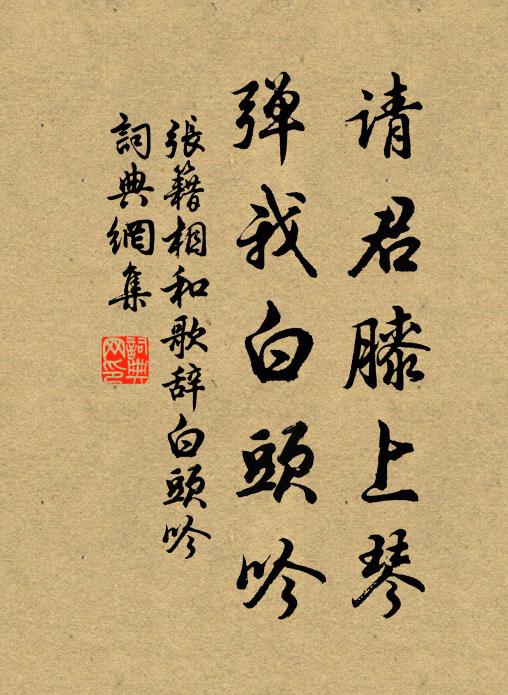 请君膝上琴
弹我白頭吟
張籍相和歌辞白頭吟
詞典網集
詞典网印